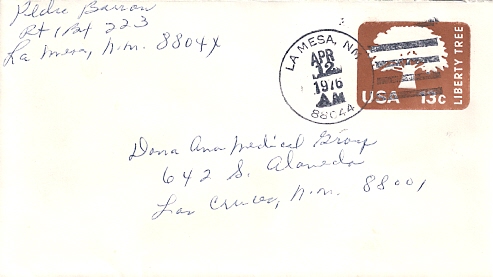 Pedro Barron
Rt 1 Box 223
La Mesa, N.M. 88044
LA MESA, NM
APR
12
1976
AM
88044
USA 13c
LIBERTY TREE
Dona Ana Medical Group
642 S. Alameda
Las Cruces, N.M. 88001